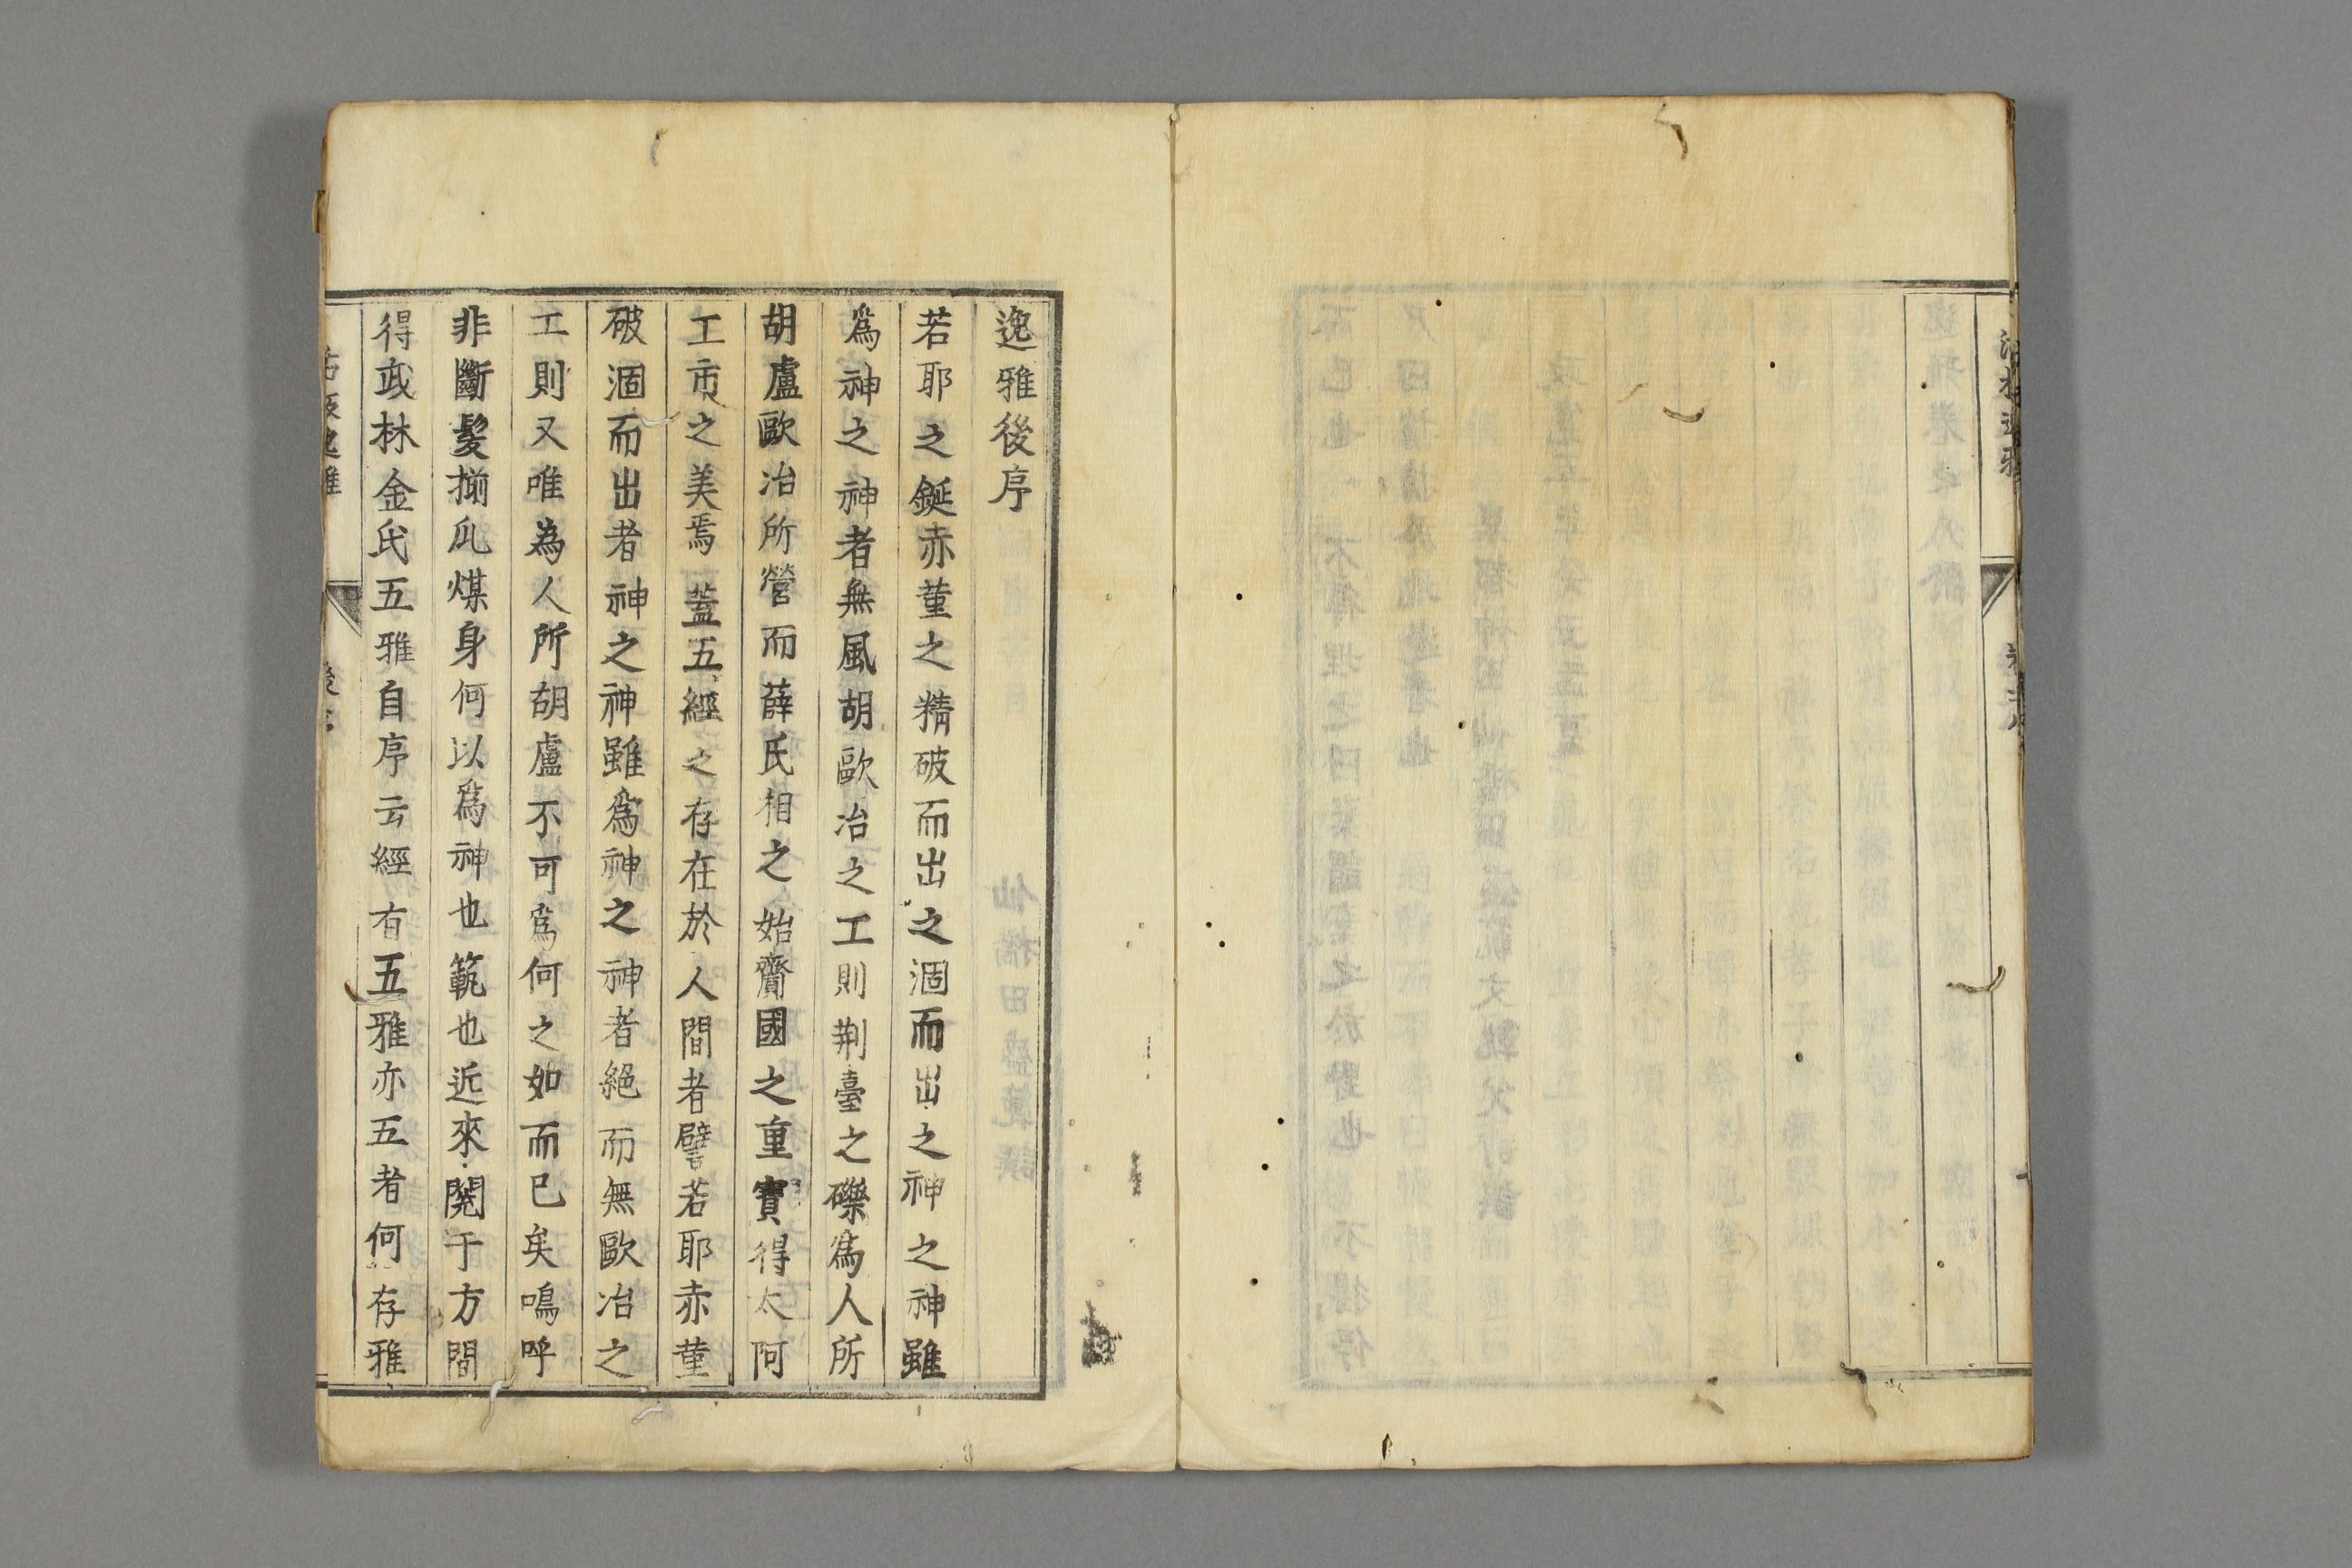 逸雅後序
若耶之鋋赤菫之精破而出之涸而出之神之神雖
爲神之神者無風胡歐冶之工則荆臺之礫爲人所
胡盧歐冶所營而薛氏相之始齎國之重寶得太阿
工市之美焉蓋五經之存在於人間者譬若耶赤菫
破涸而出者神之神雖爲神之神者絕而無歐冶之
工則又唯為人所胡盧不可爲何之如而已矣鳴呼
非斷髮揃爪煤身何以爲神也範也近來閱于方間
得武林金氏五雅自序云經有五雅亦五者何存雅